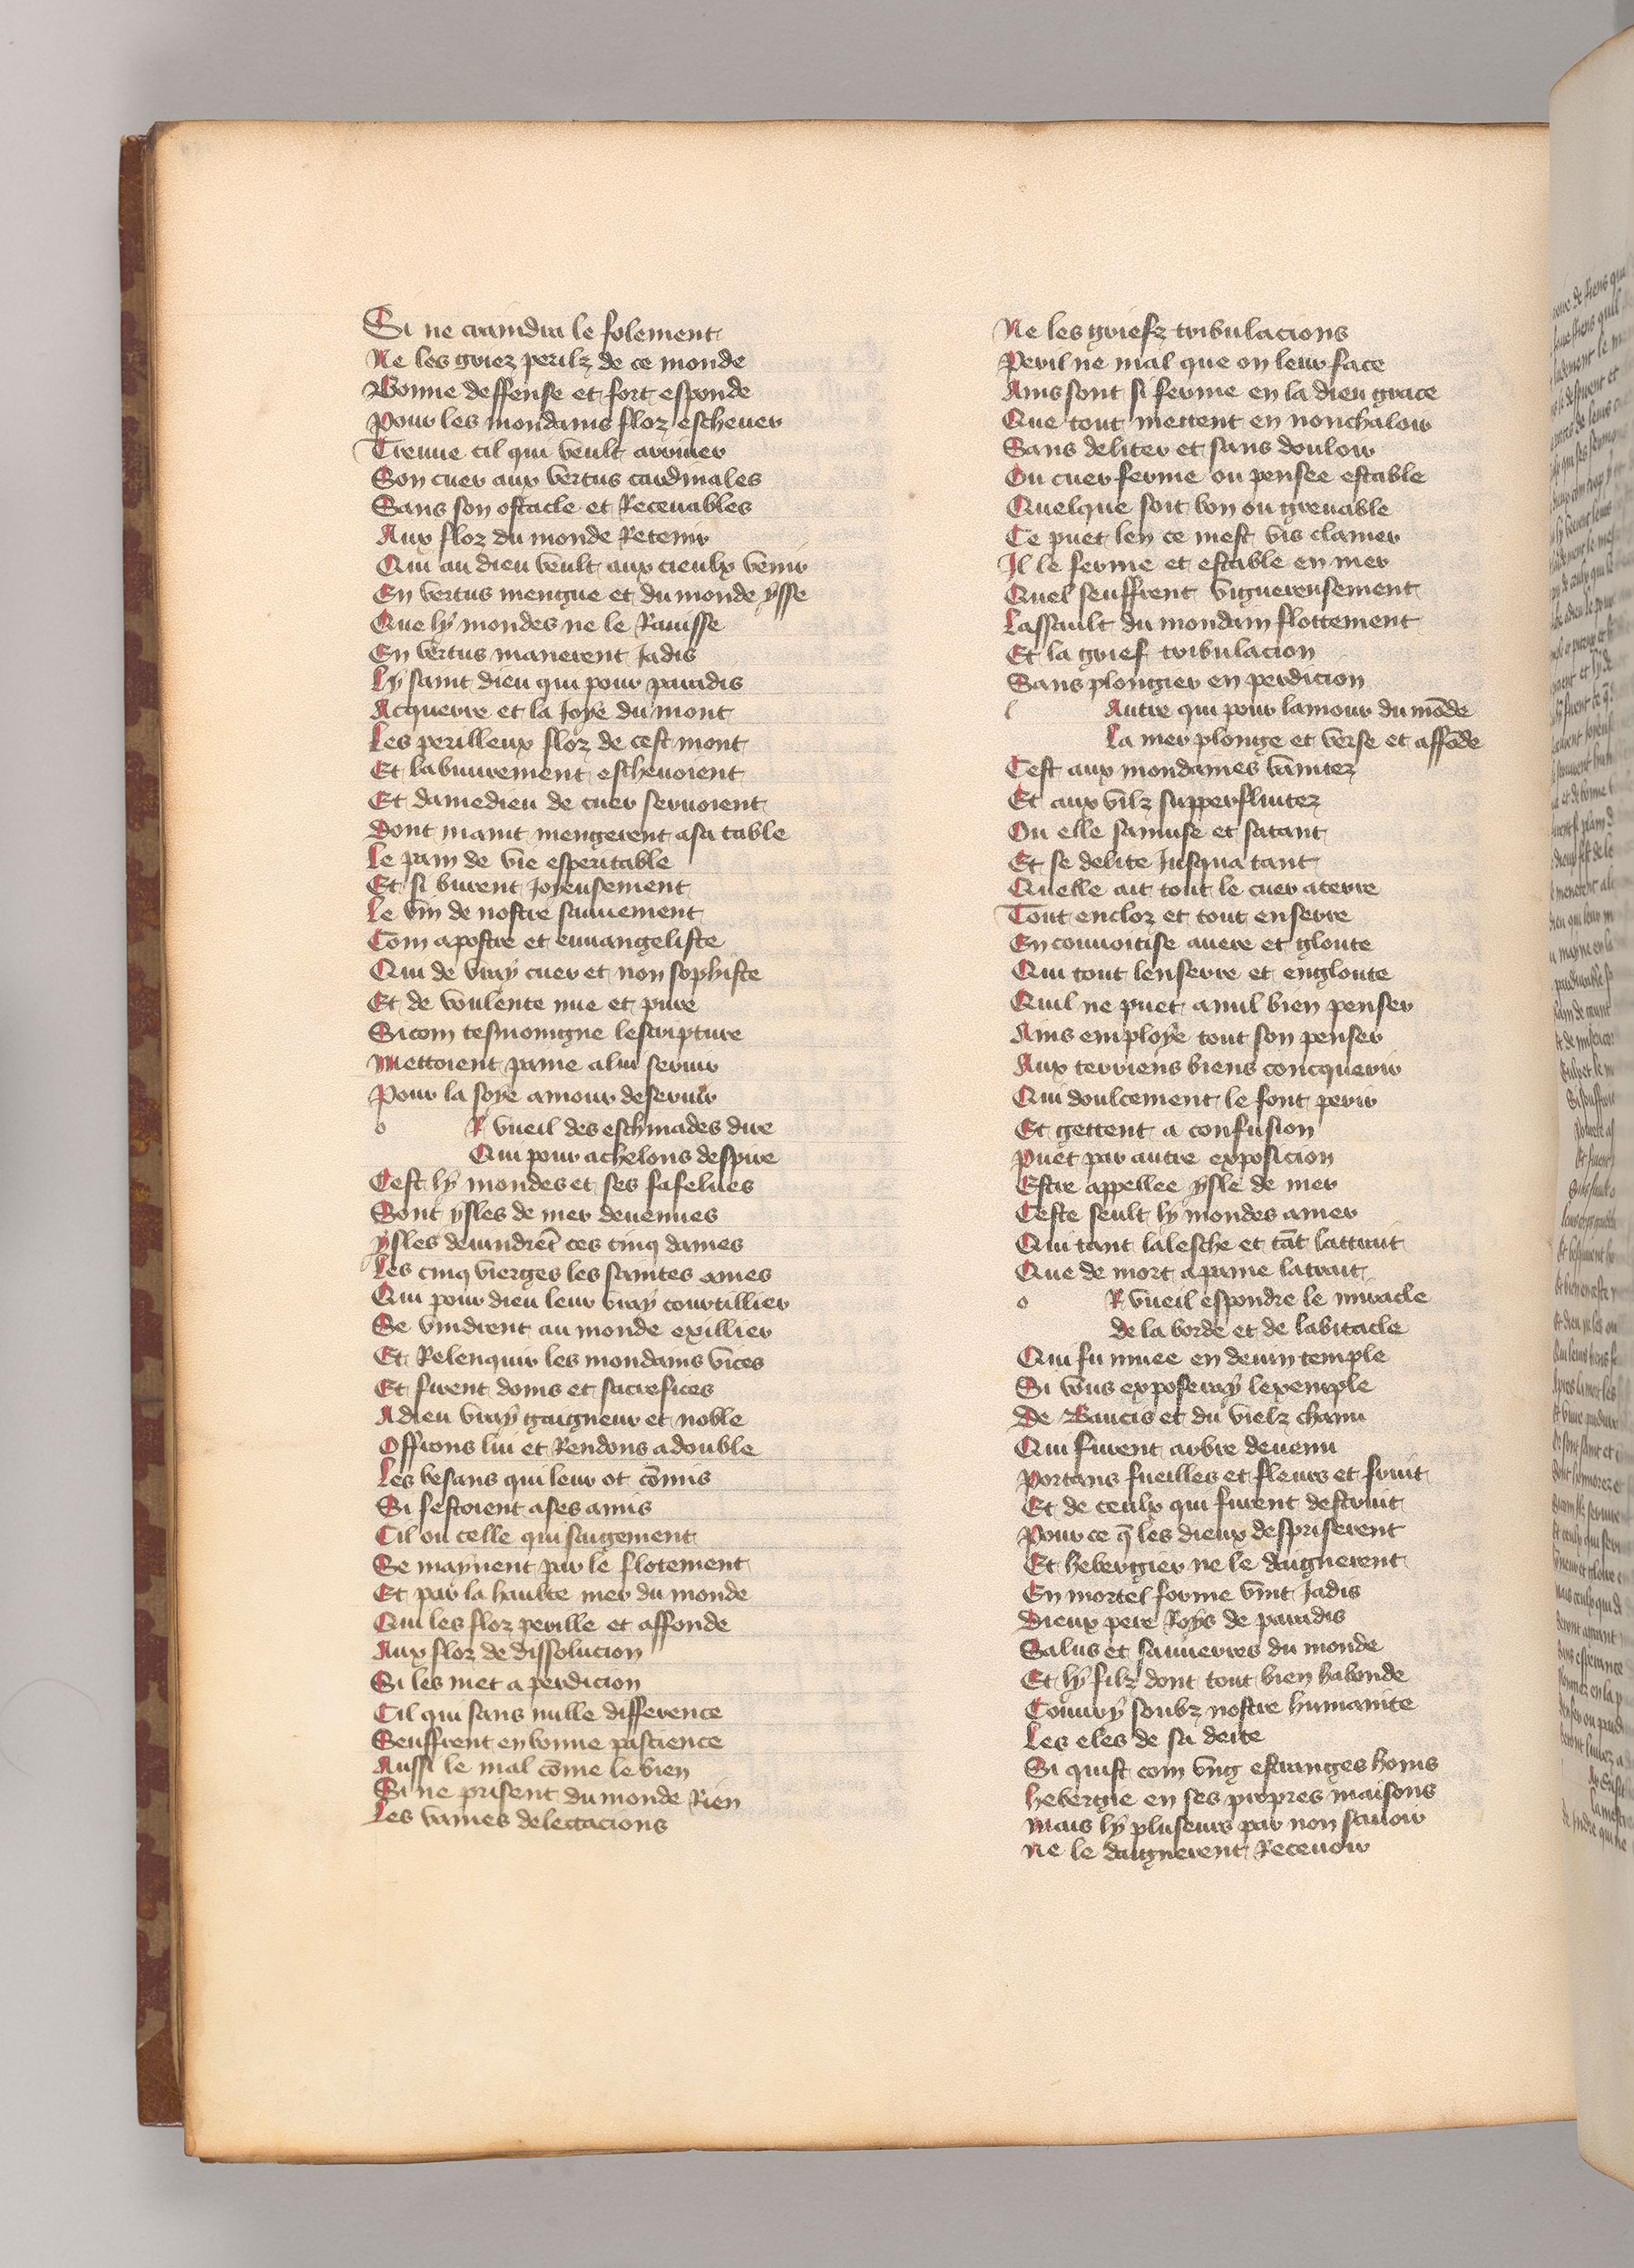 Si ne craindra le folement
Ne les griez perilz de ce monde
Bonne deffense et fort esponde
Pour les mondains floz eschever
Treuve cil qui veult arriver
Son cuer aux vertus cardinales
Sans son ostacle et Recevables
Aux floz du monde Retenir
Qui au dieu veult aux cieulx venir
En vertus mengue et du monde ysse
Que ly mondes ne le Ravisse
En vertus manerent Jadis
Ly saint dieu qui pour paradis
Acquerre et la Joye du mont
Les perilleux floz de cest mont
Et labuvrement eschevoient
Et damedieu de cuer servoient
Dont maint mengerent a sa table
Le pain de vie esperitable
Et si burent Joyeusement
Le vin de nostre sauvement
Com apostre et euvangeliste
Qui de vray cuer et non sophiste
Et de voulente nue et pure
Sicom tesmoingne lescripture
Mettoient paine a lui servir
Pour la soye amour deservir
o R vueil des eschinades dire
Qui pour achelous despire
Cest ly mondes et ses fafelues
Sont ysles de mer devenues
ysles devindrēt ces cinq dames
Les cinq vierges les saintes ames
Qui pour dieu leur vray courtillier
Se vindrent au monde exillier
Et Relenquir les mondains vices
Et firent doms et sacrefices
A dieu vray gaigneur et noble
Offrons lui et Rendons a double
Les besans qui leur ot cōmis
Si sestoient a ses amis
Cil ou celle qui saigement
Se maynent par le flotement
Et par la haulte mer du monde
Qui les floz perille et affonde
Aux floz de dissolucion
Si les met a perdicion
Cil qui sans nulle difference
Seuffrent en bonne pascience
Aussi le mal cōme le bien
Si ne prisent du monde Rien
Les vaines delectacions
Ne les griefz tribulacions
Peril ne mal que on leur face
Ains sont si ferme en la dieu grace
Que tout mettent en nonchaloir
Sans deliter et sans douloir
Ou cuer ferme ou pensee estable
Quelque soit bon ou grevable
Ce puet len ce mest vis clamer
Il le ferme et estable en mer
Quel seuffrent viguereusement
Lassault du mondain flottement
Et la grief tribulacion
Sans plongier en perdicion
l Autre qui pour lamour du mōde
La mer plonge et verse et affōde
Cest aux mondaines vanitez
Et aux vilz supperfluitez
Ou elle samuse et satant
Et se delite Jusqua tant
Quelle ait tout le cuer aterre
Tout encloz et tout enserre
En couvoitise avere et gloute
Qui tout lenserre et engloute
Quil ne puet a nul bien penser
Ains employe tout son penser
Aux terriens biens concquerir
Qui doulcement le font perir
Et gettent a confusion
Puet par autre exposicion
Estre appellee ysle de mer
Ceste seult ly mondes amer
Qui tant lalesche et tāt lattrait
Que de mort a paine latrait
o R vueil espondre le miracle
de la borde et de labitacle
Qui fu muee en devin temple
Si vous exposeray lexemple
De Baucis et du vielz chanu
Qui furent arbre devenu
Portans fueilles et fleurs et fruit
Et de ceulx qui furent destruit
Pour ce q̄ les dieux despriserent
Et hebergier ne le daignerent
En mortel forme vint Jadis
Dieux pere Roys de paradis
Salus et sauverres du monde
Et ly filz dont tout bien habonde
Couvry soubz nostre humanite
Les eles de sa deite
Si quist com vng estranges homs
hebergie en ses propres maisons
Mais ly pluseurs par non savoir
Ne le daignerent Recevoir